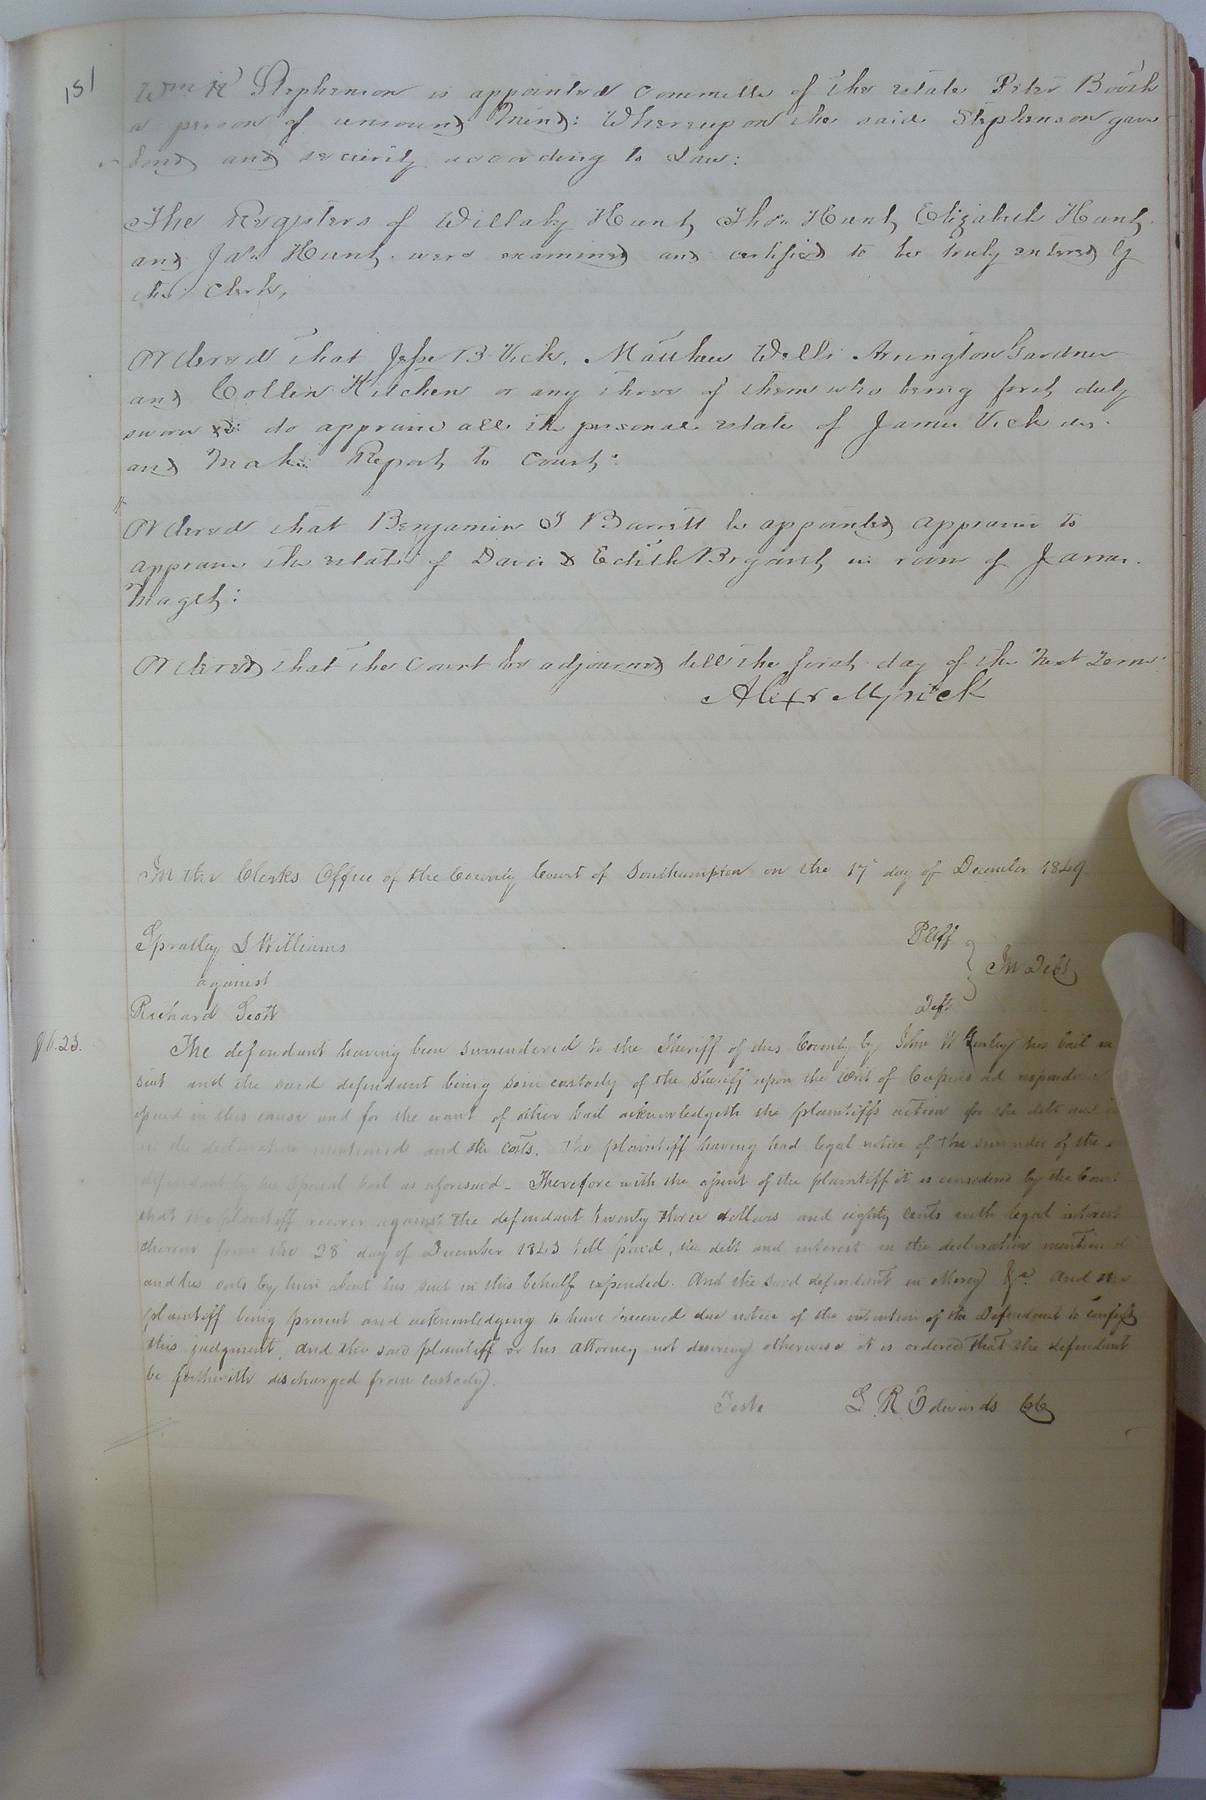 151
Wm H Stephenson is appointed Committee of the estate Peter Booth
a person of unsound Mind: Whereupon the said Stephenson gave
bond and security according to Law:
The Registers of Willaby Hunt, Thos. Hunt, Elizabeth Hunt,
and Jas. Hunt were examined and certified to be truly entered by
the Clerk,
Ordered that Jesse B Vick, Matthew Wells Arrington Gardner
and Collin Kitchen or any three of them who being first duly
sworn do appraise all the personal estate of James Vick des.
and Make Report to Court:
Ordered that Benjamin J Barrett be appointed appraiser to
appraise the estate of David & Edith Bryant, in room of James
Maget:
Ordered that the Court be adjourned till the first day of the Next Term
Alexr Myrick
In the Clerks Office of the County Court of Southampton on the 17 day of December 1849
Spratley S Williams Pltff
against In Debt
Richard Scott Deft
The defendant having been surrendered to the Sheriff of this County by John W his bail in
suit and the said defendant being so in custody of the Sheriff upon the Writ of Capias ad
issued in this cause and for the want of other bail acknowledgeth the plaintiffs action for the debt
in the declaration mentioned and the costs. The plaintiff having had legal notice of the surrender of the
defendant by his special bail as aforesaid - Therefore with the assent of the plaintiff it is considered by the Court
that the plaintiff recover against the defendant twenty three dollars and eighty cents with legal interest
thereon from the 28 day of December 1843 till paid, the debt and interest in the declaration mentioned
and his costs by him about his suit in this behalf expended. And the said defendant in Mercy &c. And the
plaintiff being present and acknowledging to have received due notice of the intention of the Defendant to confess
this judgment, and the said plaintiff or his attorney not desiring otherwise it is ordered that the defendant
be forthwith discharged from custody.
Teste L R Edwards